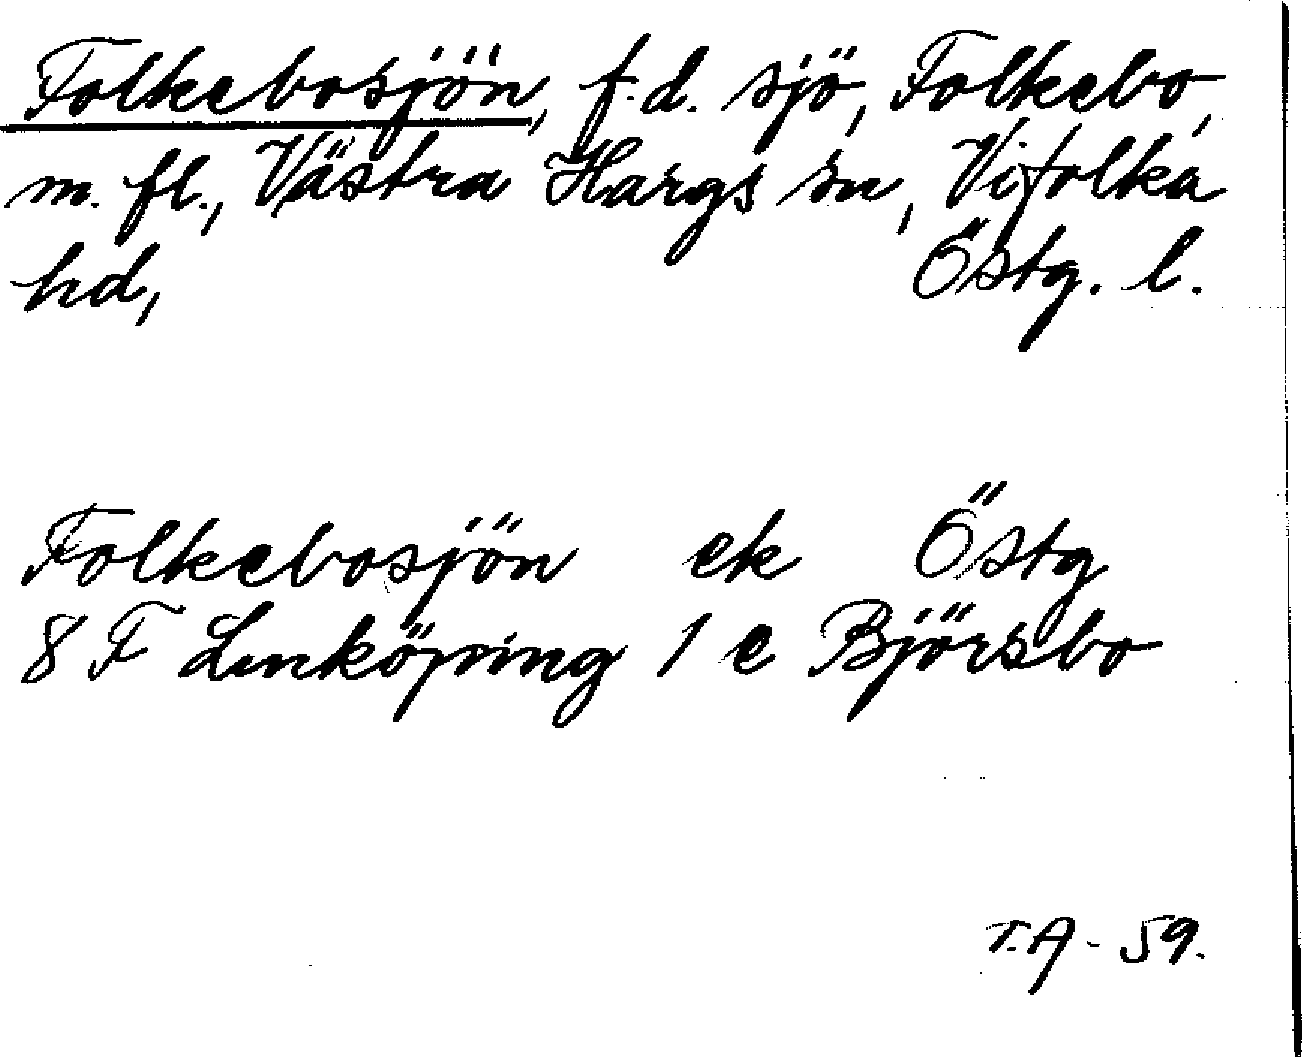 Folkebosjön, f.d. sjö, Folkebo,
m. fl., Västra Hargs sn, Vifolka
hd, Östg. l.
Folkebosjön ek Östg
8 F Linköping 1 e Björsbo
T.A - 59.